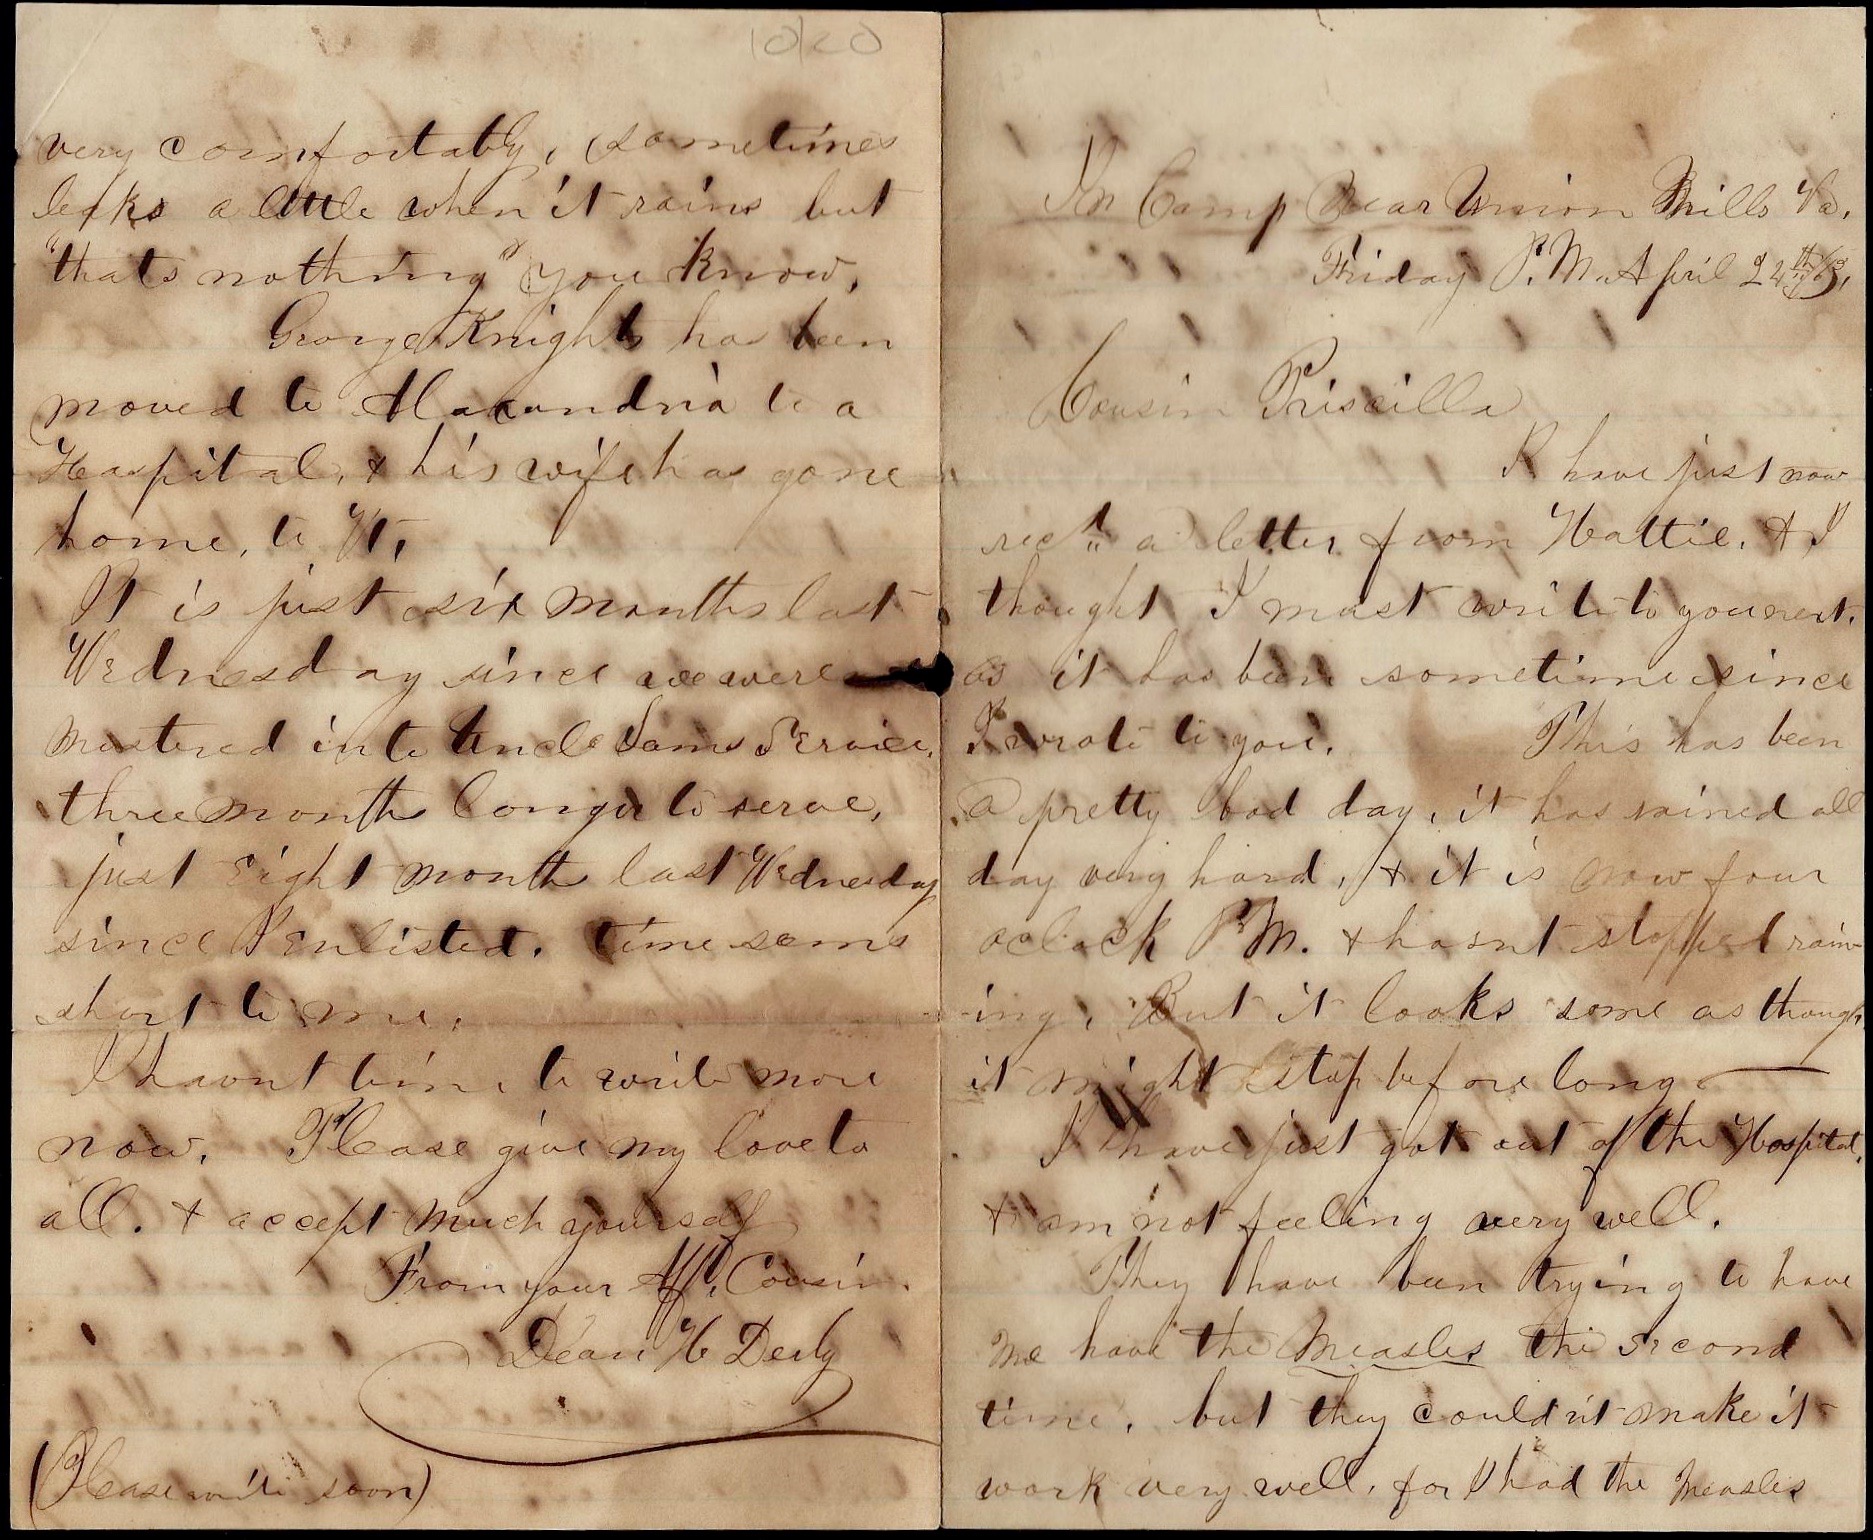 In Camp Near Union Mills Va.
Friday P.M. April 24th/63,
Cousin Priscilla
I have just now
recd a letter from Hattie. & I
thought I must write to you next.
as it has been sometime since
I wrote to you. This has been
a pretty bad day, it has rained all
day very hard, & it is now four
oclock P.M. & hasnt stopped rain-
ing, But it looks some as though
it might stop before long.
I have just got out of the Hospital,
& am not feeling very well.
They have been trying to have
me have the Measles the second
time, but they couldnt make it
work very well, for I had the Measles
1020
very comfortably, sometimes
leaks a little when it rains but
"thats nothing" you know,
George Knights has been
moved to Alaxandria to a
Haspital, & his wife has gone
home, to Vt,
It is just six months last
Wednesday since we were
mustered into Uncle Sams Service,
three months longer to serve,
just Eight month last Wednesday
since I enlisted. time seems
short to me,
I havnt time to write more
now. Please give my love to
all. & accept much yourself
From your Afft. Cousin.
Dean H Derby
(Please write soon)